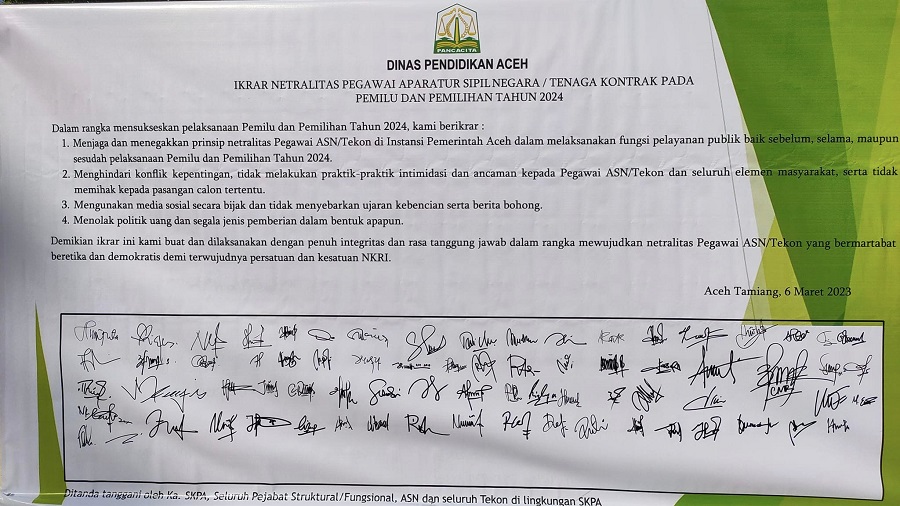 PANCACITA
DINAS PENDIDIKAN ACEH
IKRAR NETRALITAS PEGAWAI APARATUR SIPIL NEGARA / TENAGA KONTRAK PADA
PEMILU DAN PEMILIHAN TAHUN 2024
Dalam rangka mensukseskan pelaksanaan Pemilu dan Pemilihan Tahun 2024, kami berikrar :
1. Menjaga dan menegakkan prinsip netralitas Pegawai ASN/Tekon di Instansi Pemerintah Aceh dalam melaksanakan fungsi pelayanan publik baik sebelum, selama, maupun
sesudah pelaksanaan Pemilu dan Pemilihan Tahun 2024.
2. Menghindari konflik kepentingan, tidak melakukan praktik-praktik intimidasi dan ancaman kepada Pegawai ASN/Tekon dan seluruh elemen masyarakat, serta tidak
memihak kepada pasangan calon tertentu.
3. Mengunakan media sosial secara bijak dan tidak menyebarkan ujaran kebencian serta berita bohong.
4. Menolak politik uang dan segala jenis pemberian dalam bentuk apapun.
Demikian ikrar ini kami buat dan dilaksanakan dengan penuh integritas dan rasa tanggung jawab dalam rangka mewujudkan netralitas Pegawai ASN/Tekon yang bermartabat
beretika dan demokratis demi terwujudnya persatuan dan kesatuan NKRI.
Aceh Tamiang, 6 Maret 2023
Ditanda tanggani oleh Ka. SKPA, Seluruh Pejabat Struktural/Fungsional, ASN dan seluruh Tekon di lingkungan SKPA